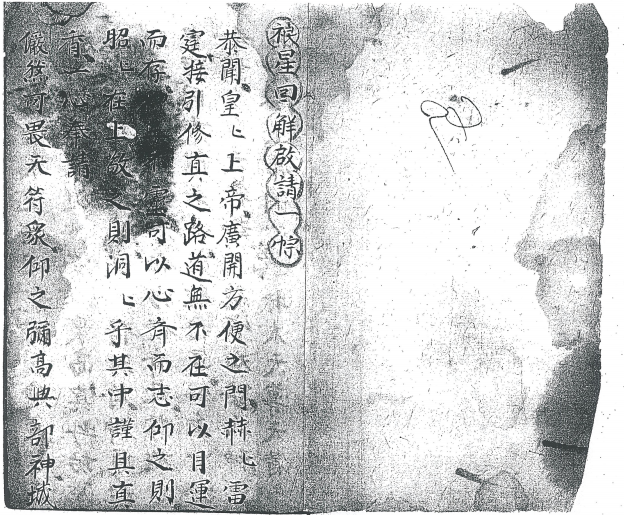 禳星回解啟請一悰
恭聞皇〻上帝廣開方便之門赫〻雷
霆接引修真之路道無不在可以目運
而存靈可以心齊而志仰之則
昭〻在上敬之則洞〻乎其中謹具真
有一心奉請
儼然可畏天符眾仰之彌高典部神